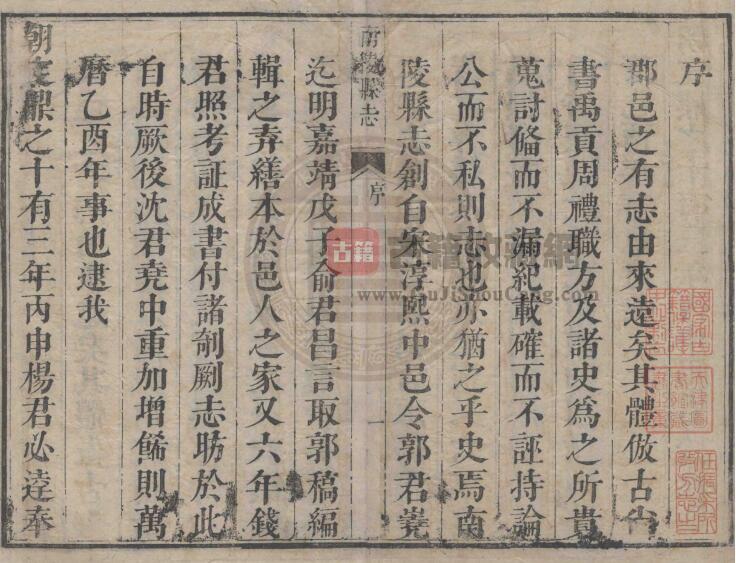 序
郡邑之有志由來遠矣其體倣古尚
書禹貢周禮職方及諸史為之所貴
蒐討俻而不漏紀載確而不誣持論
公而不私則志也亦猶之乎史焉南
陵縣志創自宋淳熙中邑令郭君嶤
南陵縣志
序
一
迄明嘉靖戊子俞君昌言取郭稿編
輯之弆繕本於邑人之家又六年錢
君照考証成書付諸剞劂志昉於此
自時厥後沈君堯中重加增餙則萬
曆乙酉年事也逮我
朝定鼎之十有三年丙申楊君必逵奉
古籍
古籍收藏網
www.GuJiShouCang.com